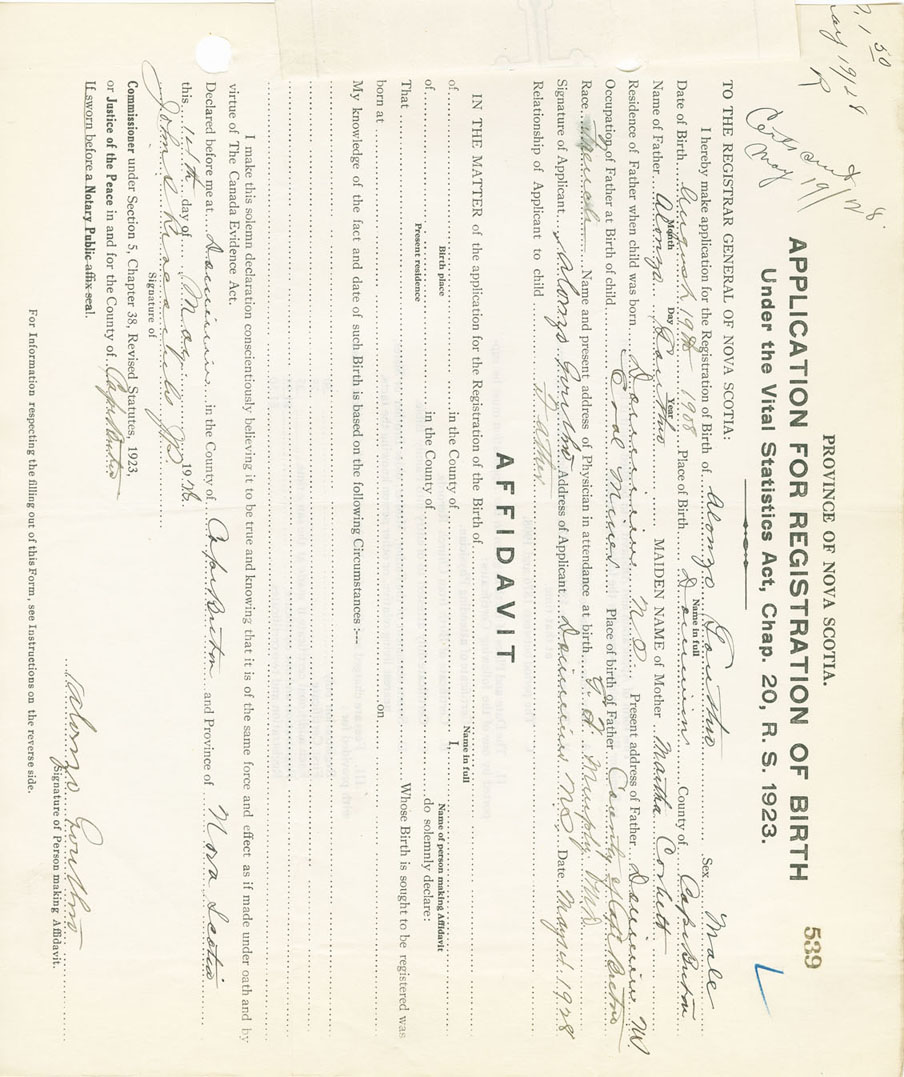 539
PROVINCE OF NOVA SCOTIA.
APPLICATION FOR REGISTRATION OF BIRTH
Under the Vital Statistics Act, Chap. 20, R. S. 1923.
.50
May 19/28
TO THE REGISTRAR GENERAL OF NOVA SCOTIA:
I hereby make application for the Registration of Birth of Alonzo Sex Male
Name in full
Date of Birth August 19th 1908 Place of Birth Dominion County of Cape Breton
Month Day Year
Name of Father Alonzo MAIDEN NAME of Mother Martha Corbett
Residence of Father when child was born Dominion N.S. Present address of Father Dominion N.S.
Occupation of Father at Birth of child Coal Miner Place of birth of Father County of Cape Breton
Race French Name and present address of Physician in attendance at birth Murphy M.D.
Signature of Applicant Alonzo Address of Applicant Dominion N.S. Date May 11 1928
Relationship of Applicant to child Father
AFFIDAVIT
IN THE MATTER of the application for the Registration of the Birth of
Name in full
of in the County of I,
Birth place Name of person making Affidavit
of in the County of do solemnly declare:
Present residence
That Whose Birth is sought to be registered was
born at on
My knowledge of the fact and date of such Birth is based on the following Circumstances :—
I make this solemn declaration conscientiously believing it to be true and knowing that it is of the same force and effect as if made under oath and by
virtue of The Canada Evidence Act.
Declared before me at Dominion in the County of Cape Breton and Province of Nova Scotia
this 11th day of May 1928.
John J.P.
Signature of
Commissioner under Section 5, Chapter 38, Revised Statutes, 1923,
or Justice of the Peace in and for the County of Cape Breton
If sworn before a Notary Public affix seal.
Alonzo
Signature of Person making Affidavit.
For Information respecting the filling out of this Form, see Instructions on the reverse side.